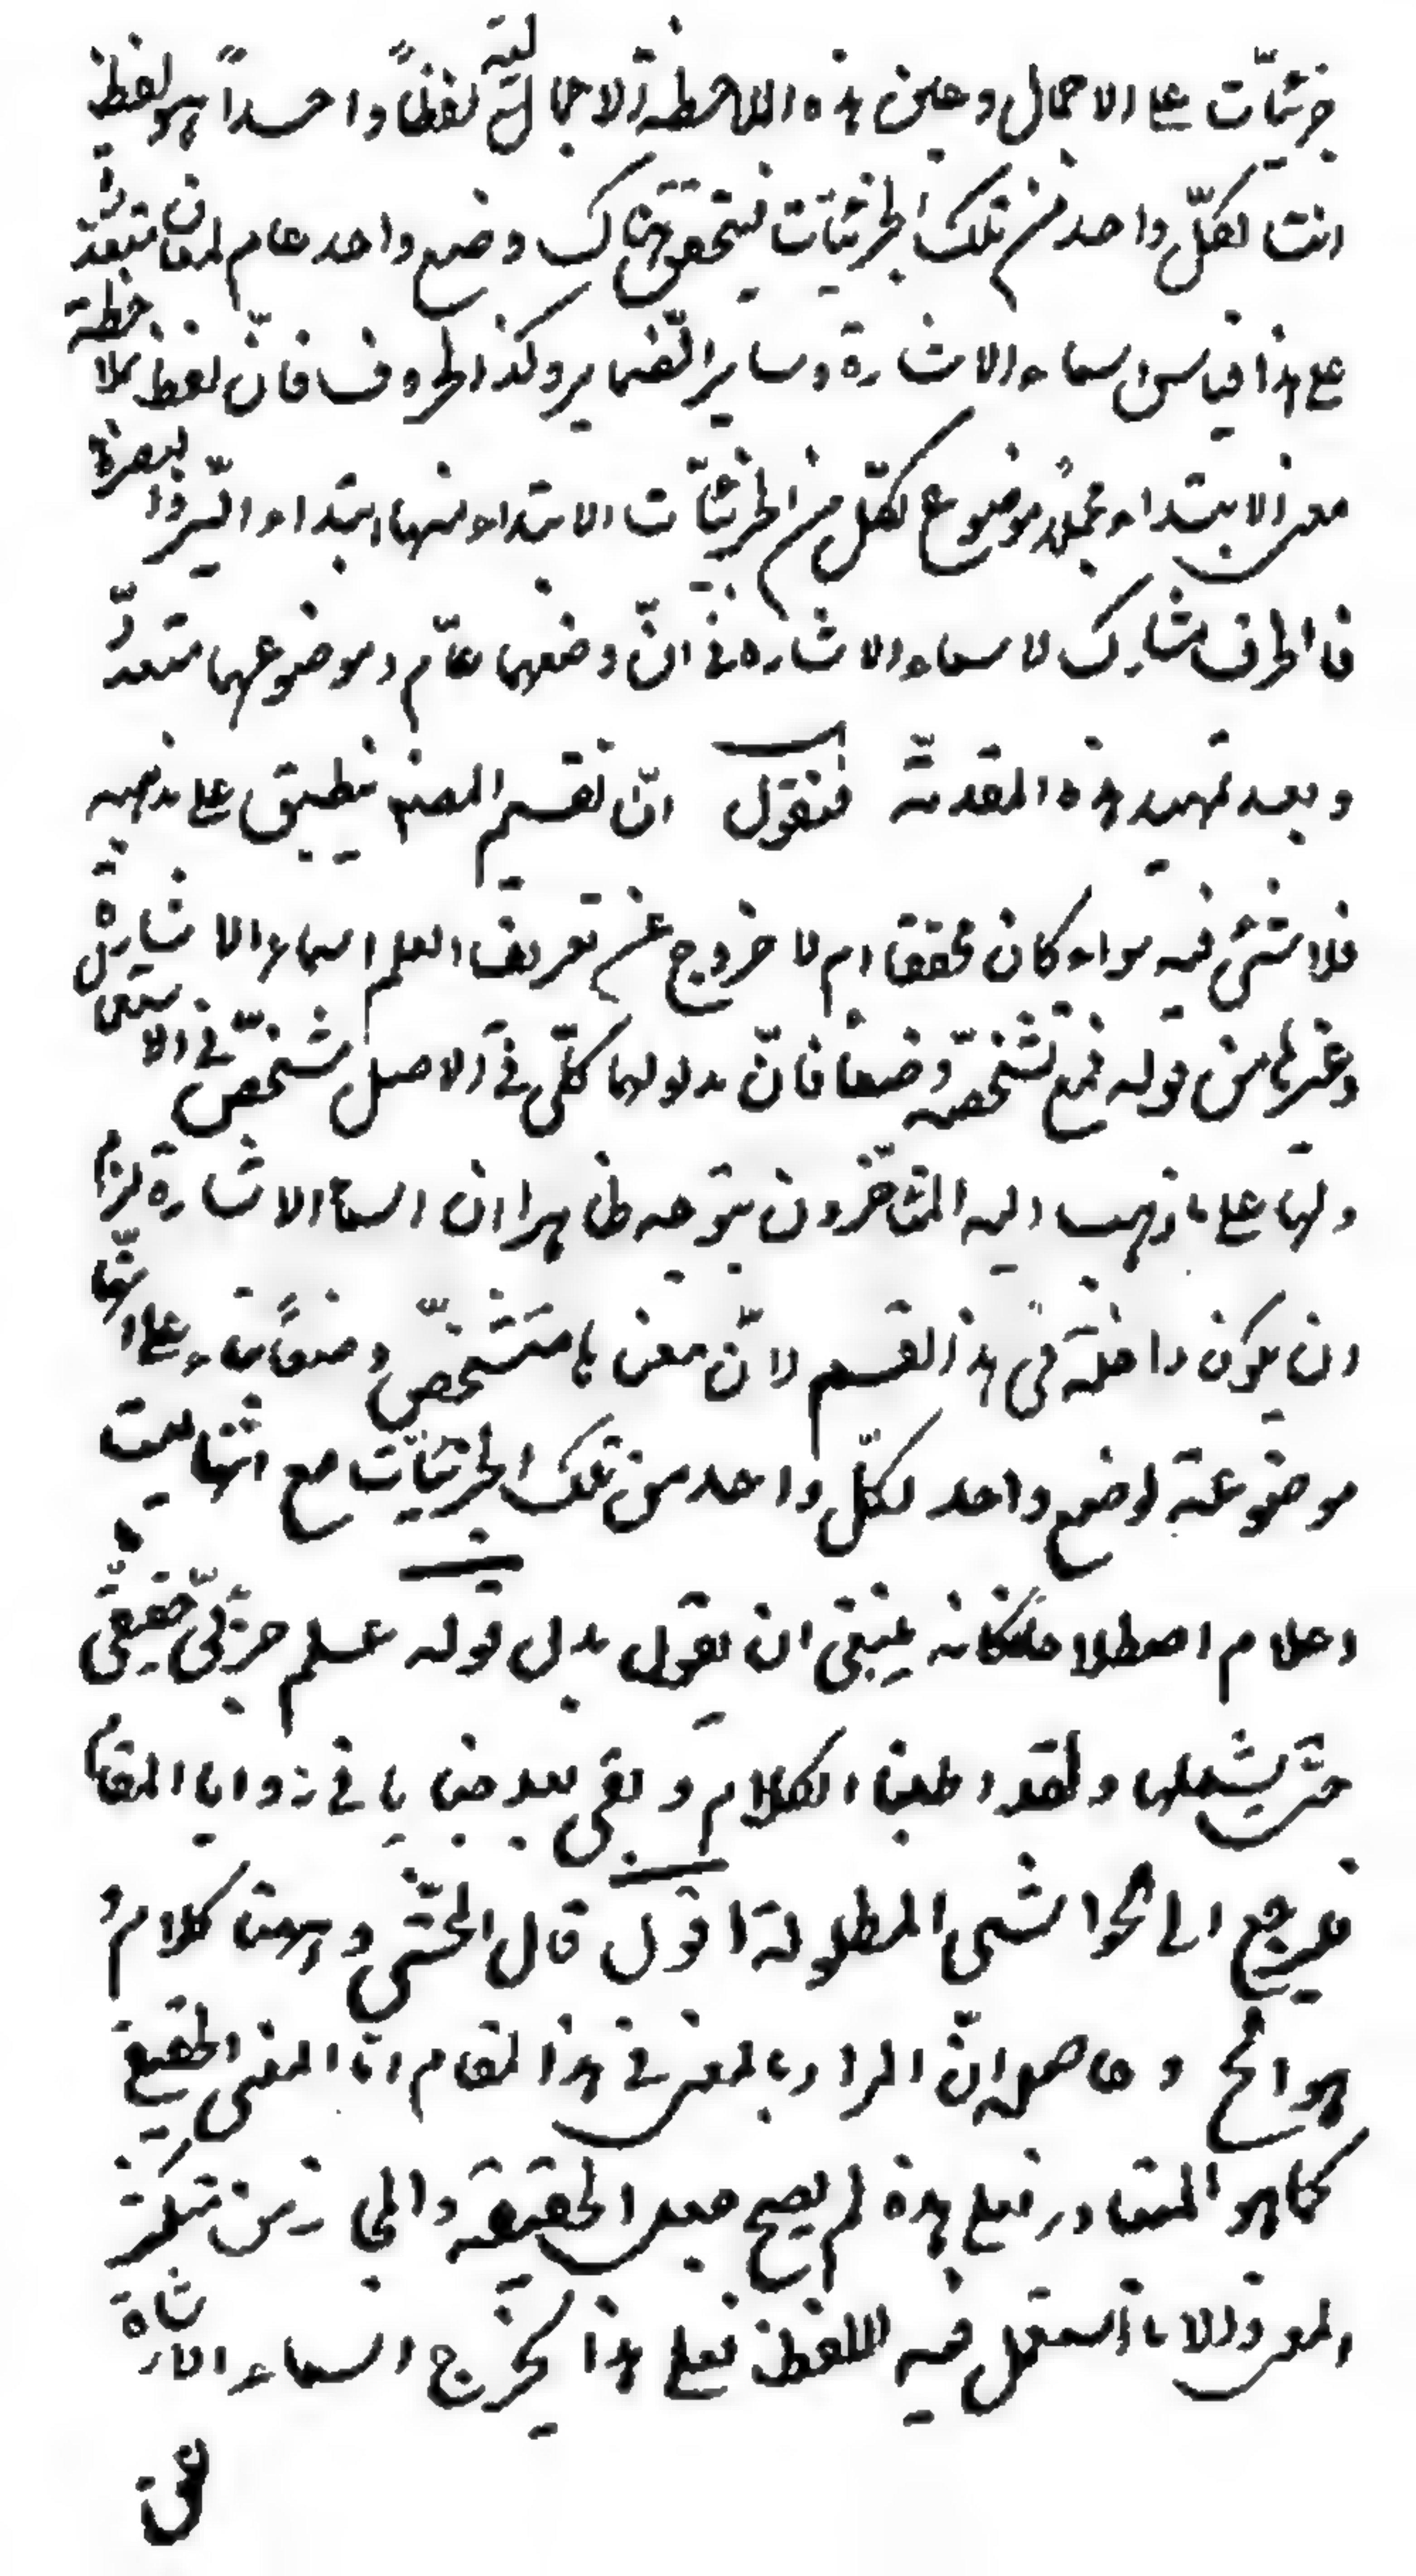 جزئيّات على الاجمال وعين هذه الملاحظة الاجمالية لفظاً واحداً هو لفظ
انت لكلّ واحد من تلك الجزئيّات فيتحقق هناك وضع واحد عام لمعان متعدّدة
على هذا قياس اسماء الاشارة وساير الضّماير وكذا الحروف فانّ لفظ من بملاحظة
معنى الابتداء مجملا موضوع لكلّ من الجزئيّات الابتداء منها ابتداء السّير والبصرة
فالحرف مشارك لاسماء الاشاره في انّ وضعهما عامّ وموضوعهما متعدّد
وبعد تمهيد هذه المقدمة فنقول انّ تقسيم المصنف ينطبق على مذهبه
فلا شئ فيه سواء كان محققا ام لا خروج عن تعريف العلم اسماء الاشارة
وغيرها من قوله فمع تشخّصه وضعا فانّ مدلولها كلّى في الاصل مشخّص في الاستعمال
ولها على ما ذهب اليه المتأخّرون يتوجه ظاهرا ان اسماء الاشارة لزم
ان يكون داخلة في هذا القسم لانّ معناها متشخّص وضعاً بناء على انّها
موضوعة لوضع واحد لكلّ واحد من تلك الجزئيّات مع انّها ليست
اعلام اصطلاحا فكانه ينبغى ان يقول بدل قوله علم جزئىّ حقيقىّ
حتّى يشملها ولقد اطبنا الكلام وبقى بعد خبايا في زوايا المقام
فليرجع الى الحواشى المطولة اقول قال المحشّى وههنا كلام و
هو الخ وحاصله انّ المراد بالمعنى في هذا المقام امّا المعنى الحقيقى
كما هو المتبادر فعلى هذه لم يصح جعل الحقيقة والمجاز من متكثر
المعنى والا ما استعمل فيه اللفظ فعلى هذا يخرج اسماء الاشارة
عن